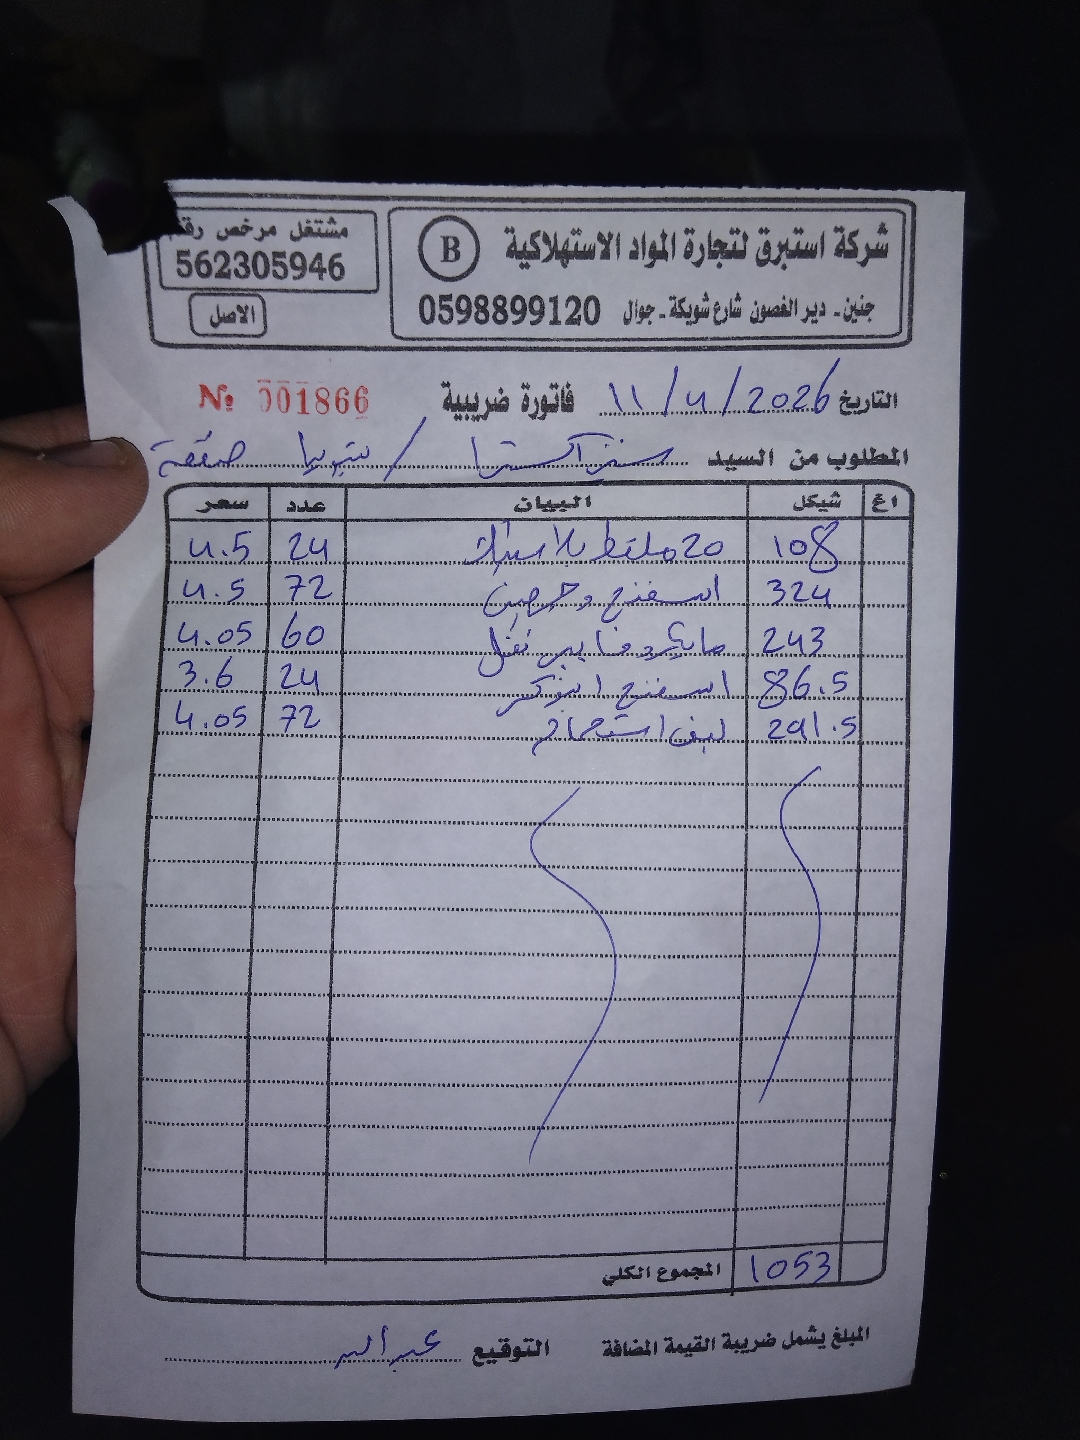 شركة استبرق لتجارة المواد الاستهلاكية B مشتغل مرخص رقم
562305946
جنين - دير الغصون شارع شويكة - جوال 0598899120
الاصل
التاريخ 11/4/2026 فاتورة ضريبية № 001866
المطلوب من السيد سنتر اكسترا /
اغ شيكل البيان عدد سعر
108 20 ملقط بلاستيك 24 4.5
324 اسفنج وجهين 72 4.5
243 مايكروفايبر نفل 60 4.05
86.5 اسفنج 24 3.6
291.5 ليف استحمام 72 4.05
المجموع الكلي 1053
المبلغ يشمل ضريبة القيمة المضافة التوقيع